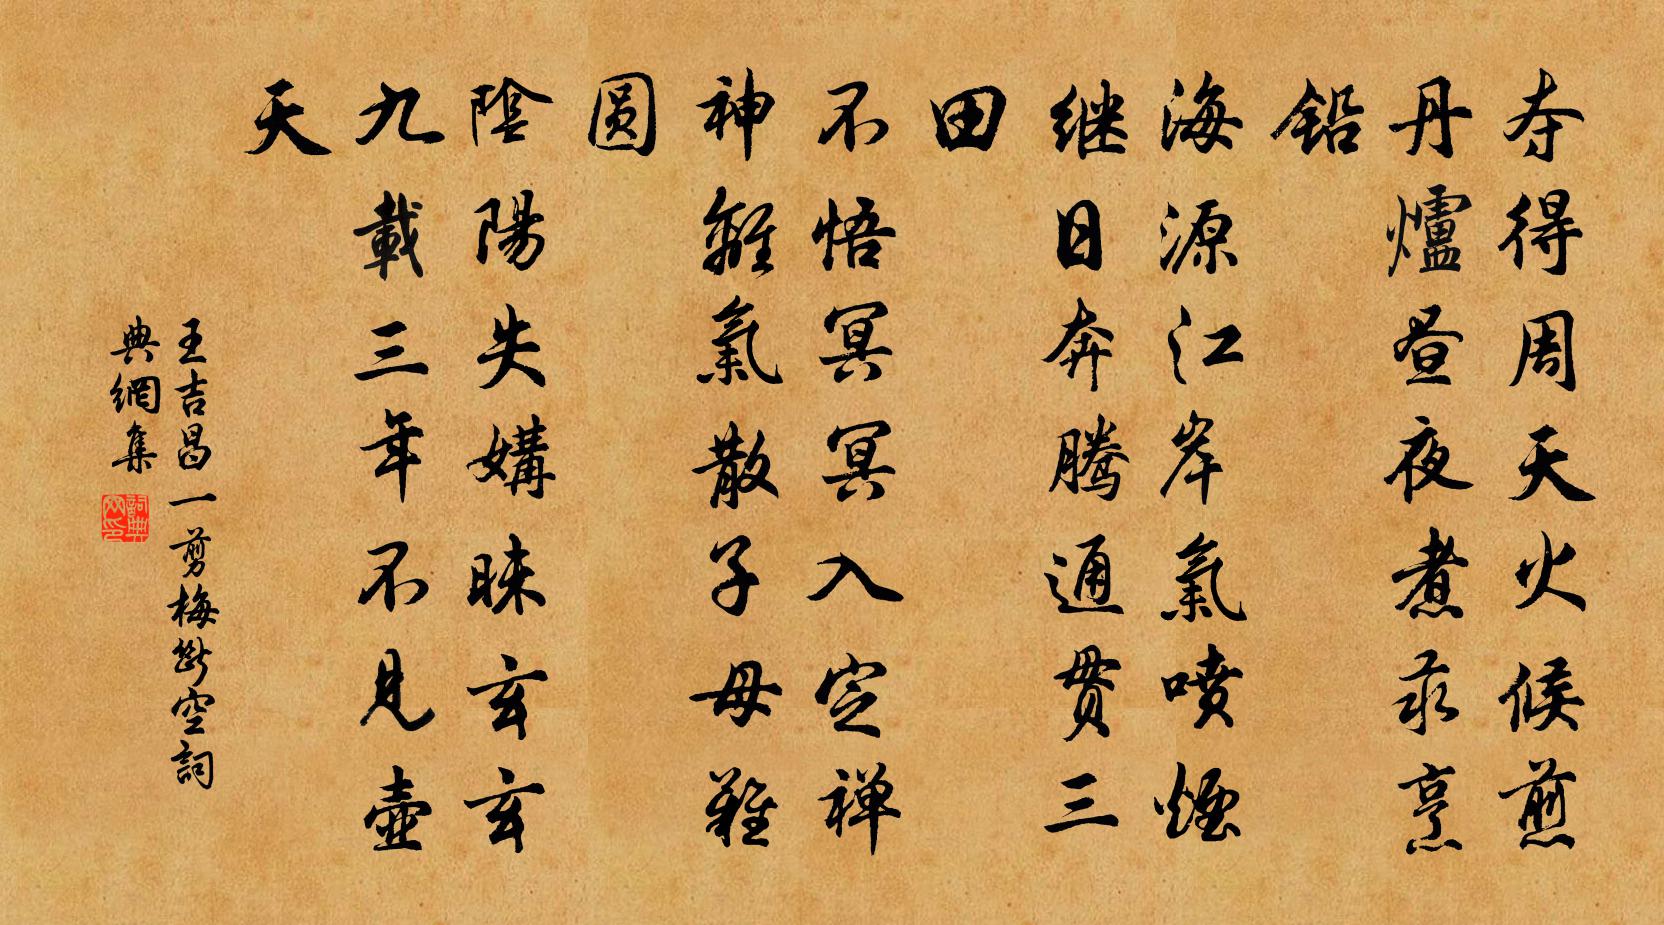 夺得周天火候煎
丹爐昼夜煮汞烹
鉛
海源江岸氣噴煙
继日奔騰通貫三
田
不悟冥冥入定禅
神離氣散子母難
圓
陰陽失媾昧玄玄
九載三年不見壺
天
王吉昌一剪梅斷空詞
典網集
詞典網印